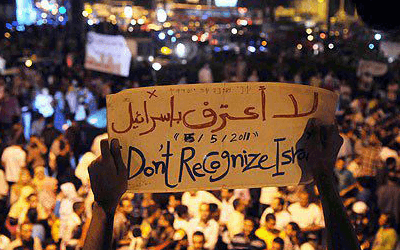 لا أعترف بإسرائيل
"15/5/2011"
Don't Recognize Isra